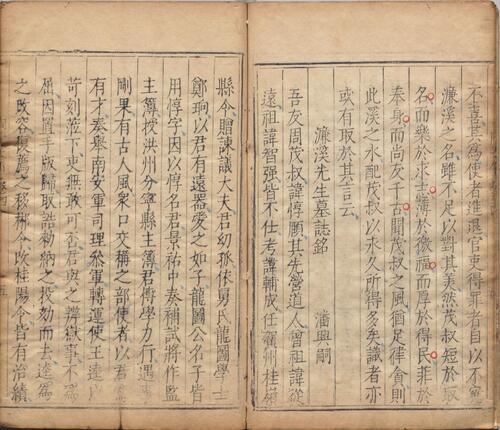 不喜其爲使者進退官吏得罪者自以不冤
濂溪之名雖不足以對其美然茂叔短於取
名而樂於求志薄於徼福而厚於得民菲於
奉身而尚友千古聞茂叔之風猶足律貪則
此溪之水配茂叔以永久所得多矣識者亦
或有取於其言云
濂溪先生墓誌銘 潘興嗣
吾友周茂叔諱惇頤其先營道人曾祖諱從
遠祖諱智强皆不仕考諱輔成任賀州桂嶺
縣令贈諫議大夫君幼孤依舅氏龍圖學士
鄭珦以君有遠器愛之如子龍圖公名子皆
用惇字因以惇名君景祐中奏補試將作監
主簿授洪州分寧縣主簿君博學力行遇事
剛果有古人風衆口交稱之部使者以君
有才奏舉南安軍司理參軍轉運使王逵以
苛刻蒞下吏無敢可否君與之辨獄事不爲
屈因置手版歸取誥勑納之投劾而去逵爲
之改容復薦之移郴令改桂陽令皆有治績